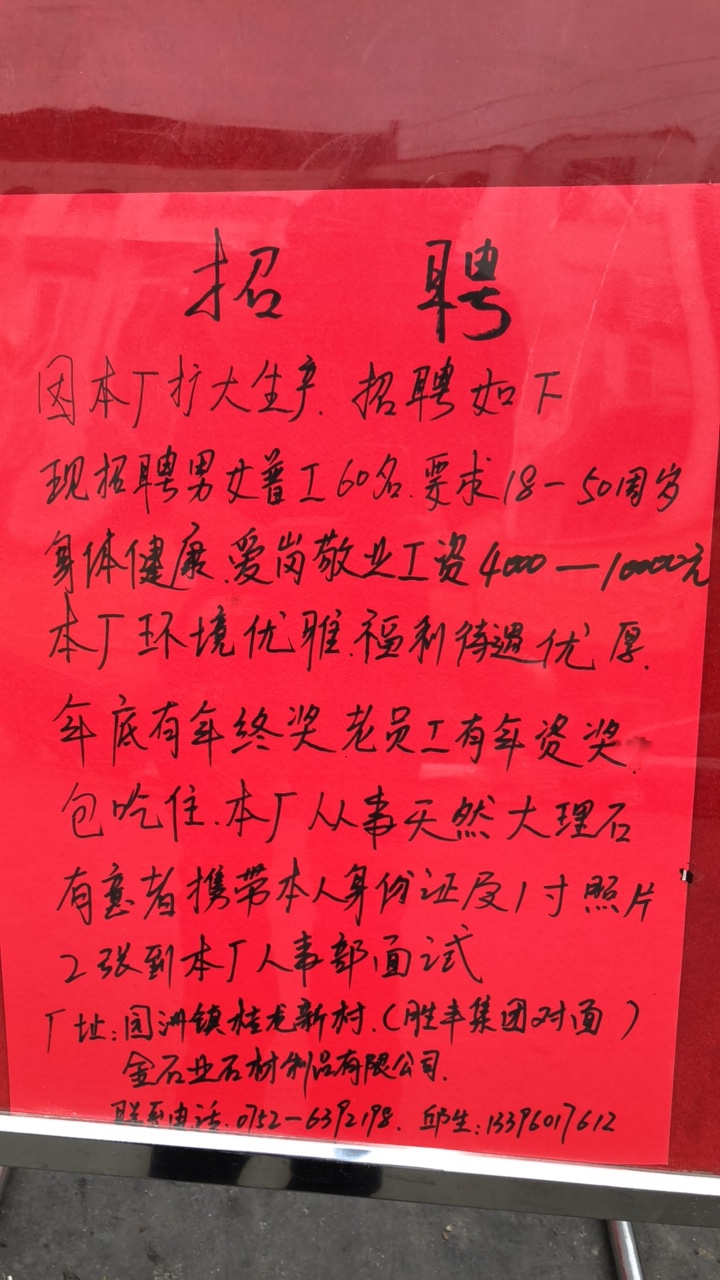 招聘
因本厂扩大生产.招聘如下
现招聘男女普工60名.要求18—50周岁
身体健康.爱岗敬业工资4000—10000元
本厂环境优雅.福利待遇优厚.
年底有年终奖老员工有年资奖.
包吃住.本厂从事天然大理石
有意者携带本人身份证及1寸照片
2张到本厂人事部面试
厂址:园洲镇桂龙新村.(胜丰集团对面)
金石业石材制品有限公司.
联系电话.0752—6392198. 邱生:13396017612